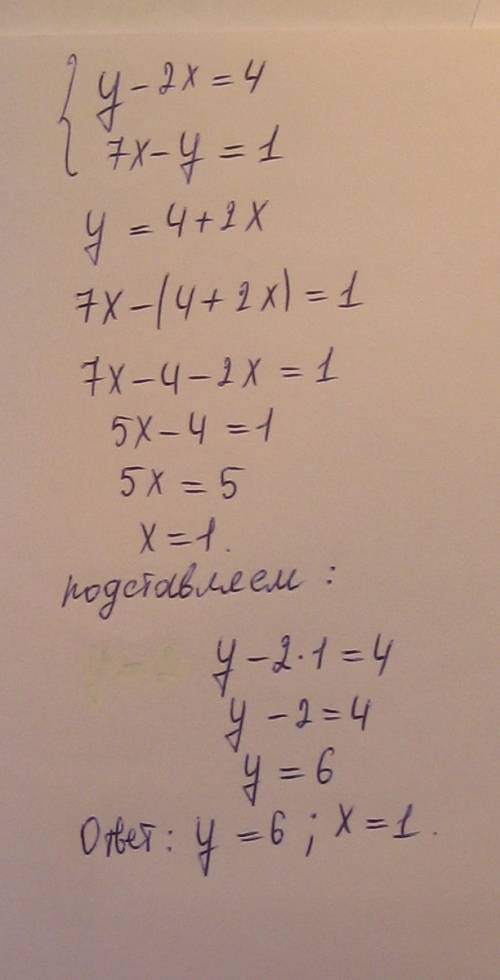 { y - 2x = 4
7x - y = 1
y = 4 + 2x
7x - (4 + 2x) = 1
7x - 4 - 2x = 1
5x - 4 = 1
5x = 5
x = 1.
подставляем :
y - 2 · 1 = 4
y - 2 = 4
y = 6
Ответ: y = 6 ; x = 1.